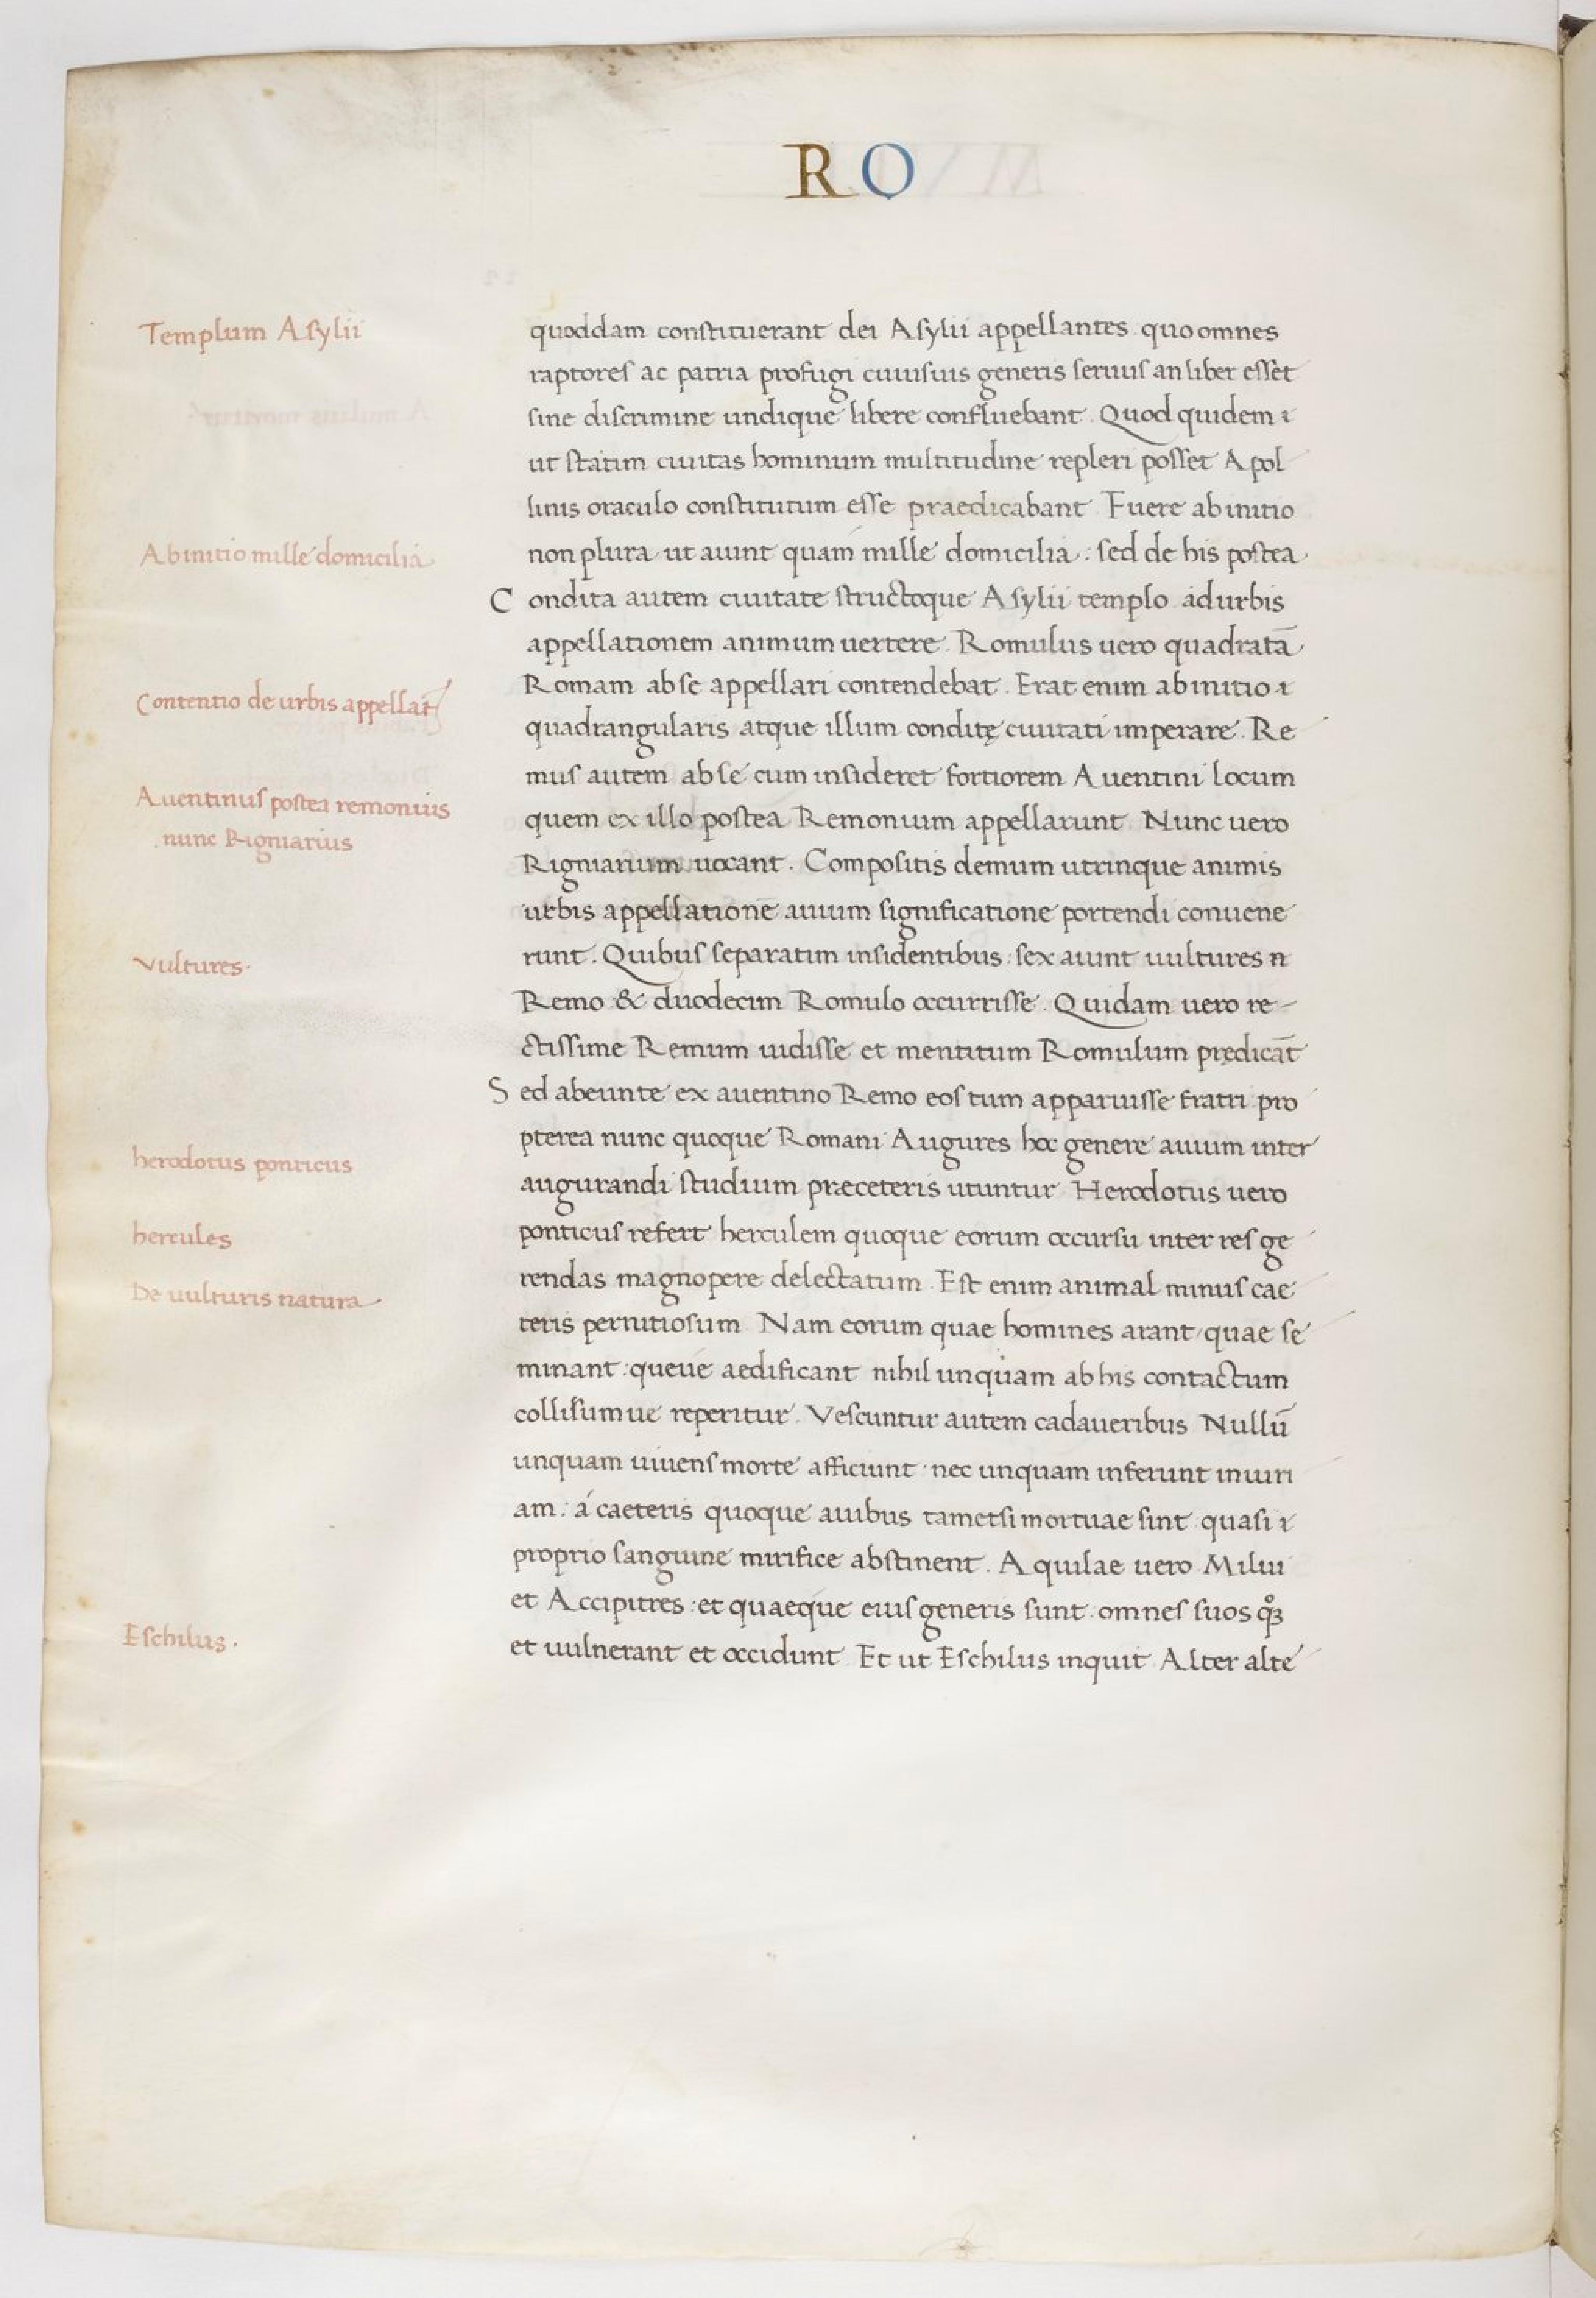 RO
Templum Asylii
quoddam constituerant dei Asylii appellantes quo omnes
raptores ac patria profugi cuiusuis generis seruus an liber esset
sine discrimine undique libere confluebant. Quod quidem
ut statim ciuitas hominum multitudine repleri posset Apol
linis oraculo constitutum esse praedicabant Fuere ab initio
Ab initio mille domicilia
non plura ut aiunt quam mille domicilia: sed de his postea
Condita autem ciuitate structoque Asylii templo ad urbis
appellationem animum uertere. Romulus uero quadratā
Contentio de urbis appellat
Romam ab se appellari contendebat. Erat enim ab initio
quadrangularis atque illum conditę ciuitati imperare. Re
Auentinus postea remonius
nunc Rigniarius
mus autem ab se cum insideret fortiorem Auentini locum
quem ex illo postea Remonium appellarunt Nunc uero
Rigniarium uocant. Compositis demum utrinque animis
urbis appellationē auium significatione portendi conuene
Vultures.
runt. Quibus separatim insidentibus: sex aiunt uultures
Remo & duodecim Romulo occurrisse. Quidam uero re-
ctissime Remum uidisse et mentitum Romulum prędicāt
Sed abeunte ex auentino Remo eos tum apparuisse fratri pro
pterea nunc quoque Romani Augures hoc genere auium inter
herodotus ponticus
augurandi studium præceteris utuntur Herodotus uero
hercules
ponticus refert herculem quoque eorum occursu inter res ge
De uulturis natura
rendas magnopere delectatum. Est enim animal minus cae
teris pernitiosum Nam eorum quae homines arant, quae se
minant: queue aedificant nihil unquam ab his contactum
collisumue reperitur. Vescuntur autem cadaueribus Nullū
unquam uiuens morte afficiunt nec unquam inferunt iniuri
am: á caeteris quoque auibus tametsi mortuae sint quasi
proprio sanguine mirifice abstinent. Aquilae uero Milui
et Accipitres: et quaeque eius generis sunt omnes suos qꝫ
Eschilus.
et uulnerant et occidunt Et ut Eschilus inquit Alter alte